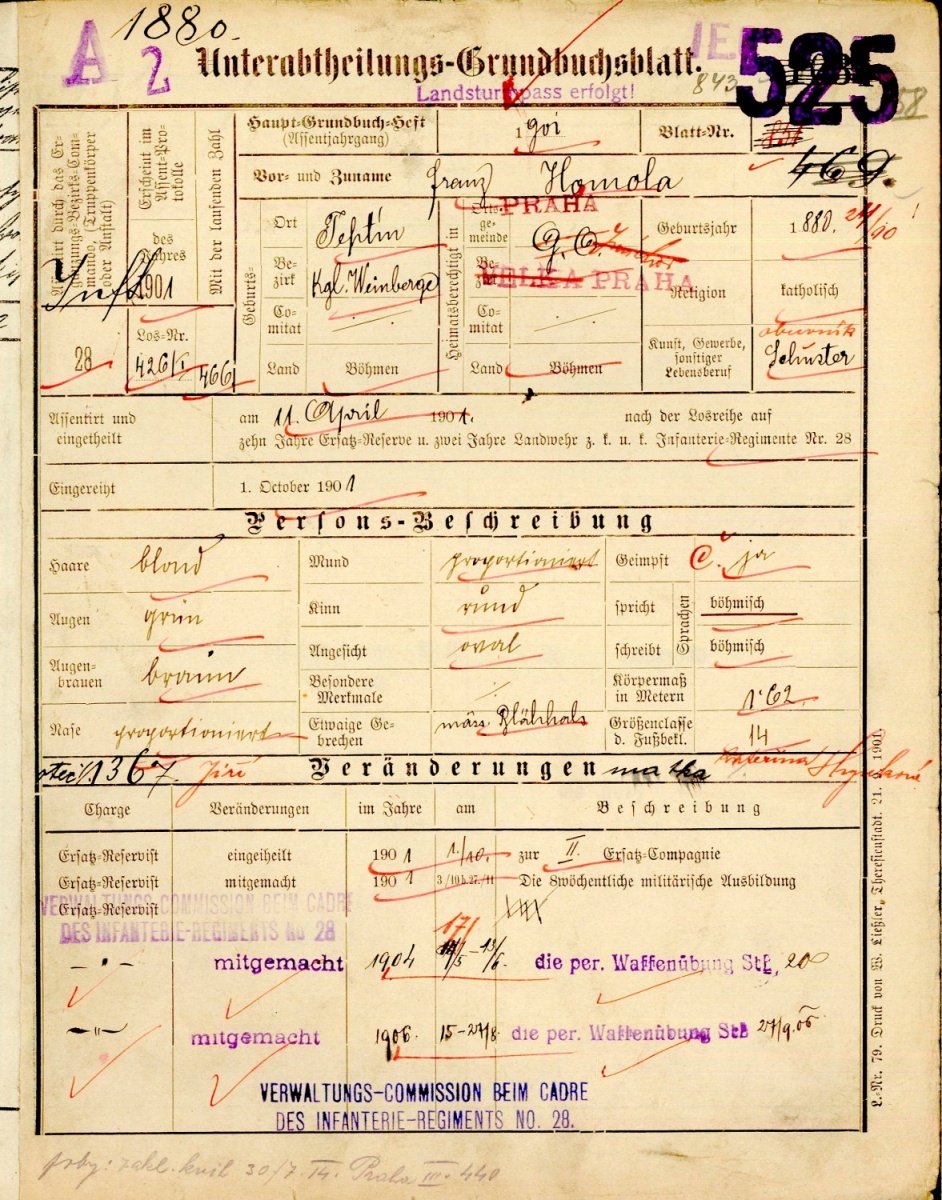 A
1880.
2
Unterabtheilungs-Grundbuchsblatt.
525
843
Landsturmpass erfolgt!
Haupt-Grundbuch-Heft
(Assentjahrgang)
1901
Blatt-Nr.
469.
Vor- und Zuname
Franz Homola
Assentirt durch das Ergänzungs-Bezirks-Commando, (Truppenkörper oder Anstalt)
28
Erscheint im Assent-Protokolle
des Jahres
1901
Los-Nr.
426/I
Mit der laufenden Zahl
466
Geburts-
Ort
Teptin
Bezirk
Kgl. Weinberge
Comitat
Land
Böhmen
Heimatsberechtigt in
Ortsgemeinde
PRAHA
Bezirk
VELKA PRAHA
Comitat
Land
Böhmen
Geburtsjahr
1880.
24/10
Religion
katholisch
Kunst, Gewerbe, sonstiger Lebensberuf
obuvník
Schuster
Assentirt und eingetheilt
am 11. April 1901. nach der Losreihe auf
zehn Jahre Ersatz-Reserve u. zwei Jahre Landwehr z. k. u. k. Infanterie-Regimente Nr. 28
Eingereiht
1. October 1901
Persons-Beschreibung
Haare
blond
Augen
grün
Augenbrauen
braun
Nase
proportioniert
Mund
proportioniert
Kinn
rund
Angesicht
oval
Besondere Merkmale
Etwaige Gebrechen
mäss. Blähhals
Geimpft
ja
Sprachen
spricht
böhmisch
schreibt
böhmisch
Körpermaß in Metern
1·62
Größenclasse d. Fußbekl.
14
otec
1367
Jiří
Veränderungen
matka
Kateřina
Charge
Veränderungen
im Jahre
am
Beschreibung
Ersatz-Reservist eingeiheilt 1901 1./10. zur II. Ersatz-Compagnie
Ersatz-Reservist mitgemacht 1901 3/10 b. 27./11 Die 8wöchentliche militärische Ausbildung
Ersatz-Reservist
VERWALTUNGS-COMMISSION BEIM CADRE
DES INFANTERIE-REGIMENTS No 28
17/
mitgemacht 1904 /5-13/6. die per. Waffenübung
mitgemacht 1906. 15-27/8 die per. Waffenübung
VERWALTUNGS-COMMISSION BEIM CADRE
DES INFANTERIE-REGIMENTS NO. 28.
L.-Nr. 79. Druck von W. Ließler, Theresienstadt. 21. 1901
30/7. 14. Praha III. 440